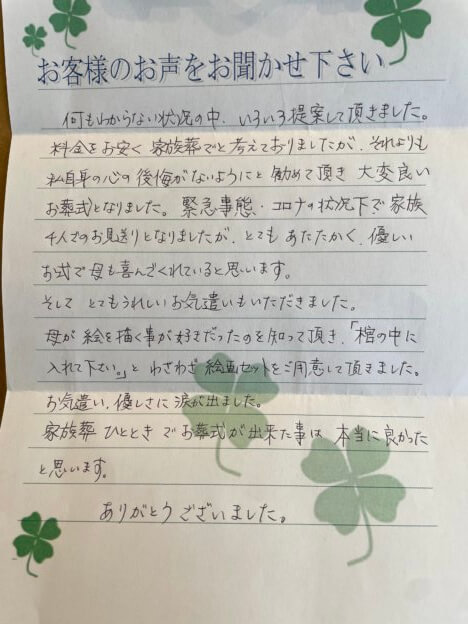 お客様のお声をお聞かせ下さい
何もわからない状況の中、いろいろ提案して頂きました。
料金をお安く 家族葬でと考えておりましたが、それよりも
私自身の心の後悔がないようにと 勧めて頂き 大変良い
お葬式となりました。緊急事態・コロナの状況下で家族
4人でのお見送りとなりましたが、とても あたたかく、優しい
お式で母も喜んでくれていると思います。
そして とてもうれしいお気遣いもいただきました。
母が 絵を描く事が好きだったのを知って頂き、「棺の中に
入れて下さい。」と わざわざ 絵画セットをご用意して頂きました。
お気遣い、優しさに 涙が出ました。
家族葬 ひととき でお葬式が出来た事は 本当に良かった
と思います。
ありがとうございました。